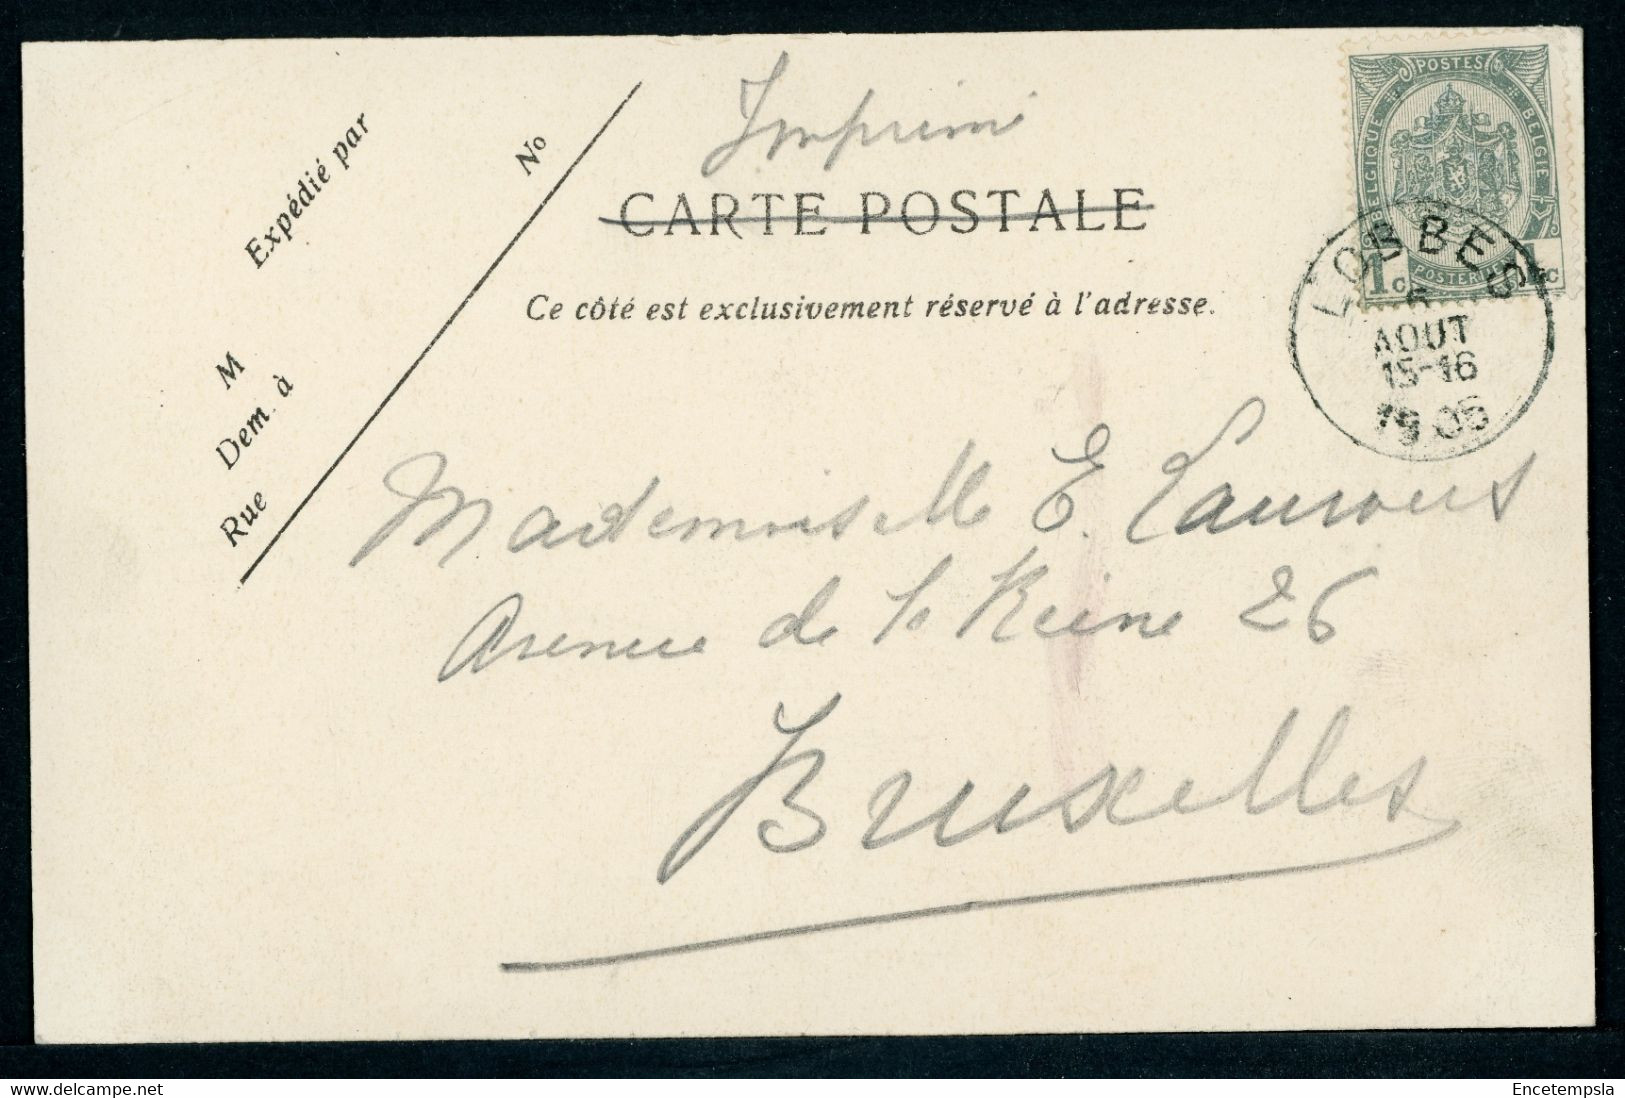 Imprimé
CARTE POSTALE
Ce côté est exclusivement réservé à l'adresse.
Expédié par
No
M
Dem. à
Rue
POSTES
BELGIQUE
BELGIË
1c
LOBBES
AOUT
15-16
Mademoiselle E. Lauwers
Avenue de la Reine 26
Bruxelles
delcampe.net
Encetempsla